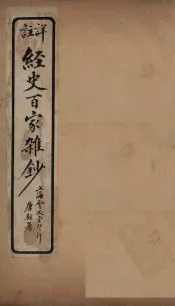 詳註
經史百家雜鈔
上海會文堂印行